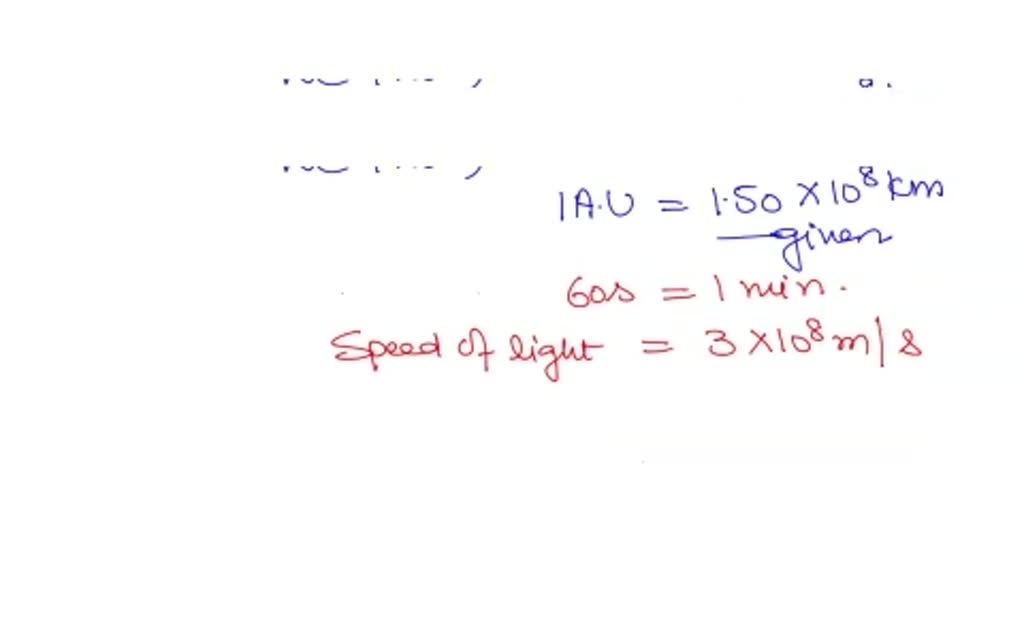 1A.U = 1.50 × 10⁸ km
given
60s = 1 min.
Speed of light = 3 × 10⁸ m/s